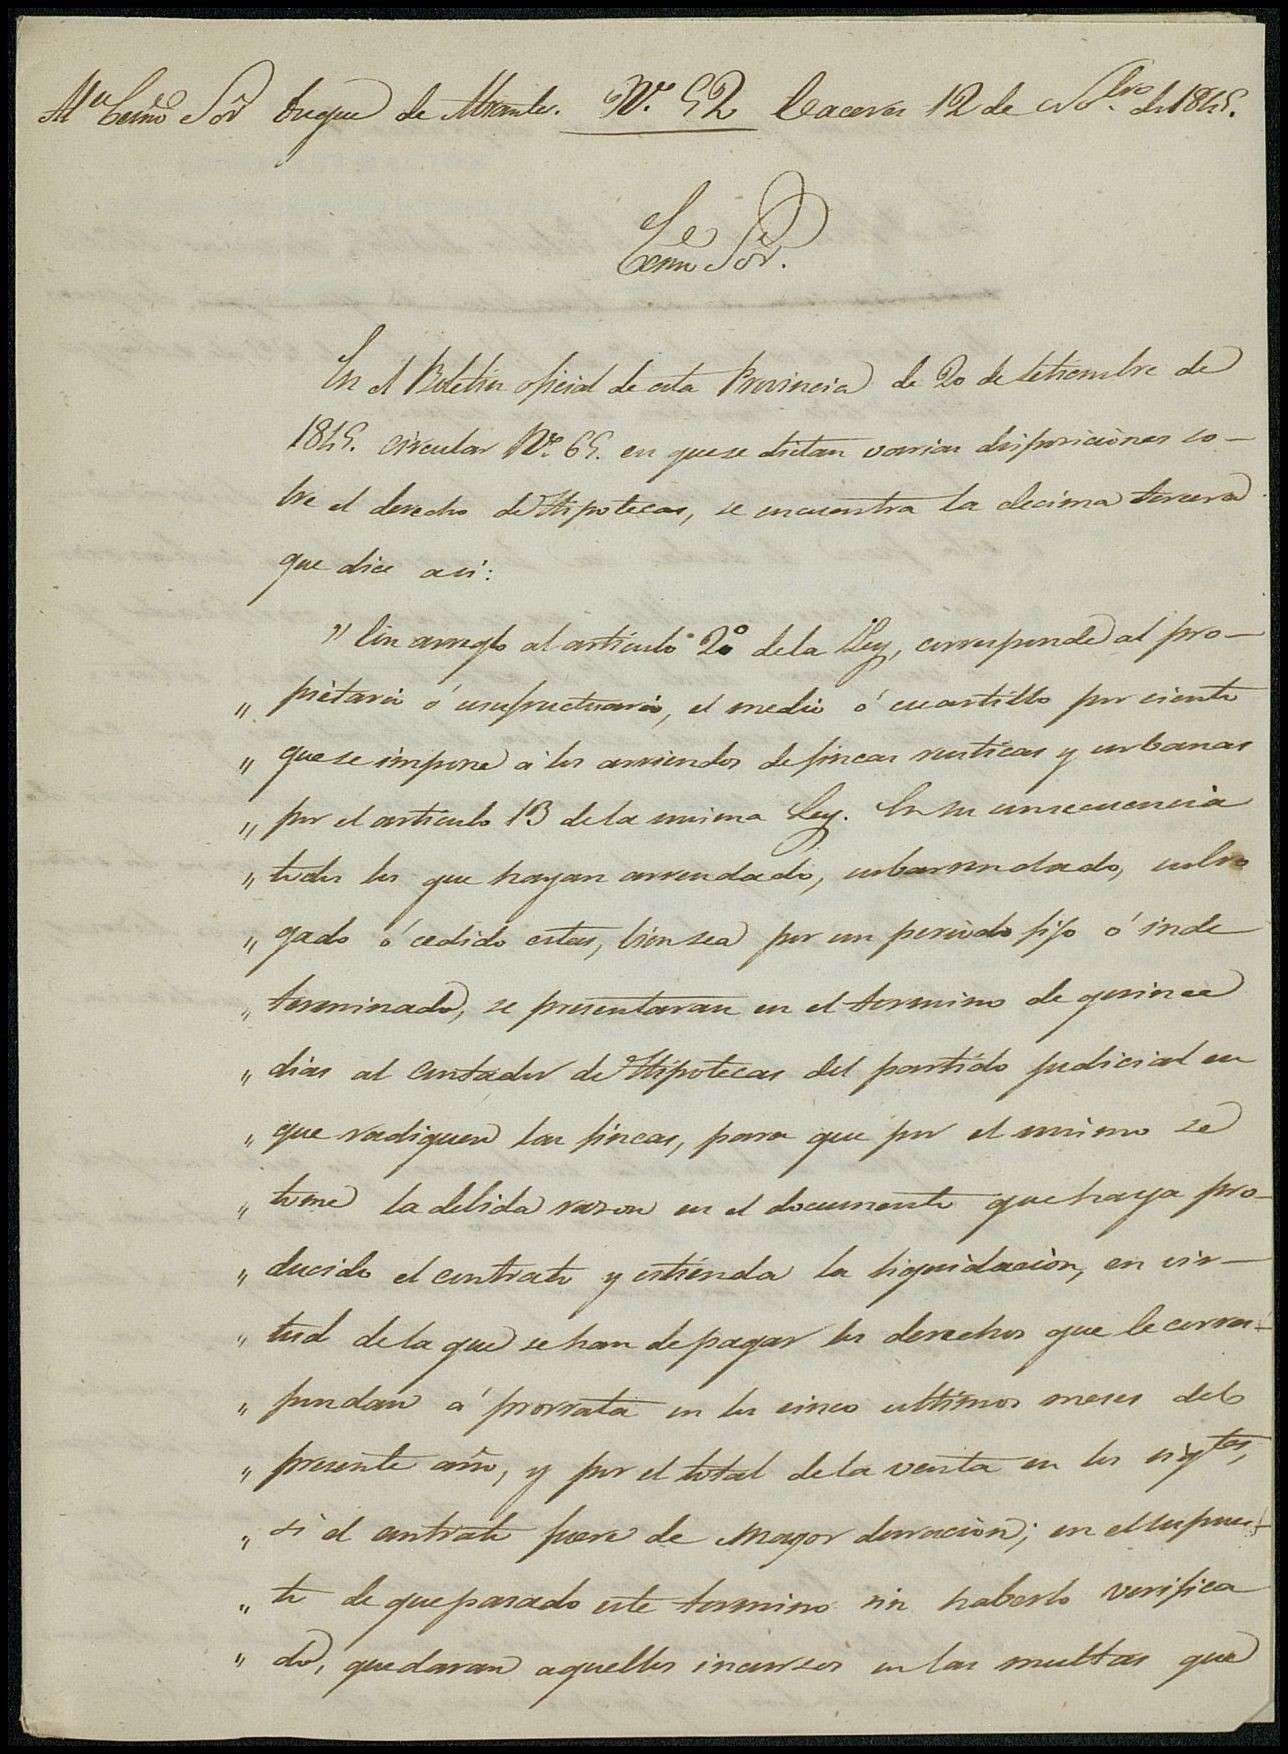 Al Excmo Sor Duque de Abrantes. Nº. 52 Caceres 12 de Nobre. de 1845.
Exmo Sor.
En el Boletin oficial de esta Provincia de 20 de Setiembre de
1845. circular Nº. 65. en que se dictan varias disposiciones so-
bre el derecho de Hipotecas, se encuentra la decima tercera
que dice asi:
" Con arreglo al articulo 2º de la Ley, corresponde al pro-
" pietario ó usufructuario, el medio ó cuartillo por ciento
" que se impone á los arriendos de fincas rusticas y urbanas
" por el articulo 13 de la misma Ley. En su consecuencia
" todos los que hayan arrendado, subarrendado, subro
" gado ó cedido estas, bien sea por un periodo fijo ó inde
" terminado, se presentaran en el termino de quince
" dias al contador de Hipotecas del partido judicial en
" que radiquen las fincas, para que por el mismo se
" tome la debida razon en el documento que haya pro-
" ducido el contrato y estienda la liquidacion, en vir-
" tud de la que se han de pagar los derechos que le corres-
" pondan á prorrata en los cinco ultimos meses del
" presente año, y por el total de la renta en los sigtes,
" si el contrato fuere de mayor duracion; en el supues-
" to de que pasado este termino sin haberlo verifica
" do, quedaran aquellos incursos en las multas que